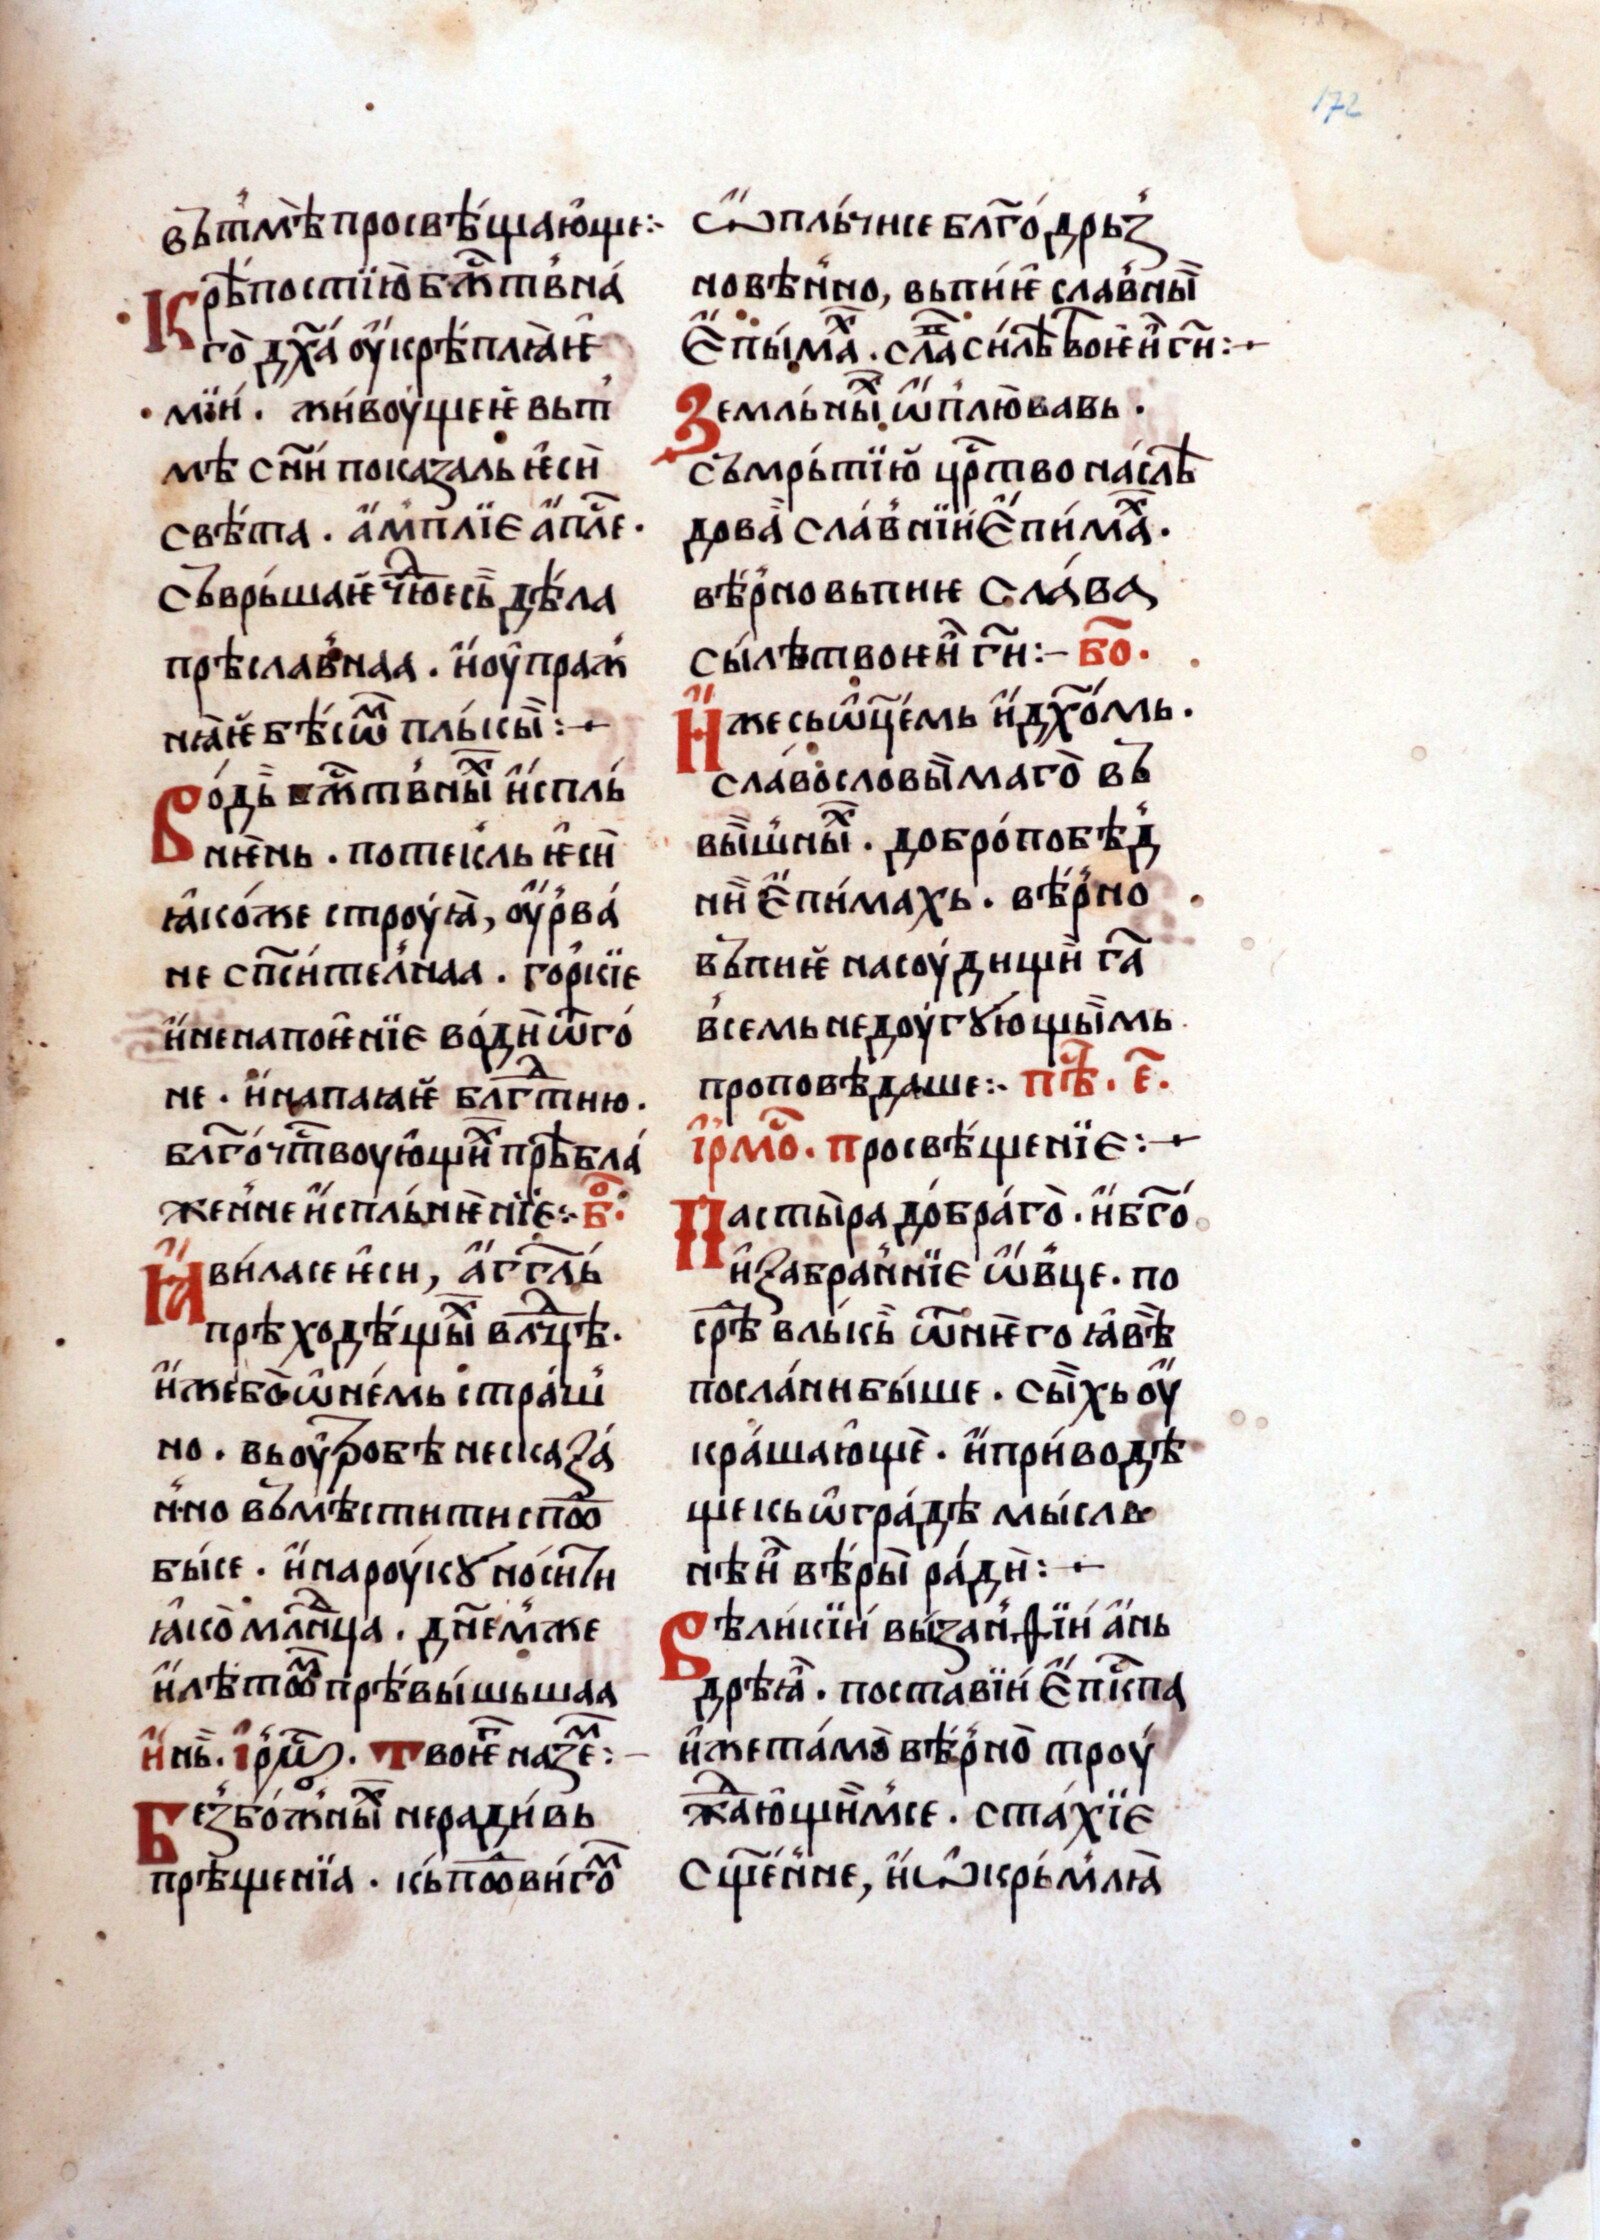 172
въ тмѣ просвѣщающе:-
Крѣпостїю бж҃твна
го дх҃а оукрѣплꙗѥ
мїи. живоущеѥ вьт
мѣ сн҃и показаль ѥси
свѣта. амплїе ап҃ле.
съврьшаѥ чюⷣесь дѣла
прѣславнаа. и оупраж
нꙗѥ бѣси ѿ пльскы:-
Водь бж҃твныⷯ испль
нѥнь. потекль ѥси
ꙗкоже строуꙗ, оурва
не сп҃сителнаа. горкїе
и ненапоѥнїе води ѿго
не. и напаꙗѥ блг҃ⷣтию.
блг҃очⷭтвоующиⷯ прѣбла
женне испльнѥнїе:- б҃оⷢ.
Ꙗвиласе ѥси, агг҃ль
прѣходѣщыⷯ влⷣцѣ.
иже бо ѡ немь страш
но. вь оутробѣ несказа
нно въмѣстити спⷣо
бысе. и на роукꙋ носити
ꙗко млⷣнца. дн҃емже
и лѣтѡⷨ прѣвышьшаа
инь. їрмⷭѡ. Твоѥ на зеⷨ:-
Безбожныⷯ нерадивь
прѣщенїа. кь поⷣвигоⷨ
сѡпльчисе блг҃одрьз
новѣнно, вьпиѥ славныⷨ
Епымаⷯ. слаⷡ силѣ твоѥи г҃и:-
Земльныⷯ ѡплювавь.
съмрьтїю црⷭтво наслѣ
дова славнїи Епимаⷯ.
вѣрно вьпиѥ слава
сылѣ твоѥи г҃и:- б҃о.
Иже сь ѡц҃емь и дх҃омь.
славословымаго въ
вышныⷯ. добропобѣд
ни Епимахь. вѣрно
въпиѥ на соудищи г҃а
всемь недоугꙋющымь
проповѣдаше:- пѣⷭ. е҃.
ірмоⷭ. Просвѣщенїе:-
Пастыра добраго. и б҃го
изабраннїе ѡвце. по
срѣⷣ влькь ѿ нѥго ꙗвѣ
послани быше. сыхь оу
крашающе. и приводѣ
ще кь ѡградѣ мысль
нѣи вѣры ради:-
Вѣликїи вызанѳїи ань
дреꙗ. поставїи Епⷭкпа
иже тамо вѣрно троу
жⷣающимсе. стахїе
сщ҃енне, и ѡкрьмлꙗ